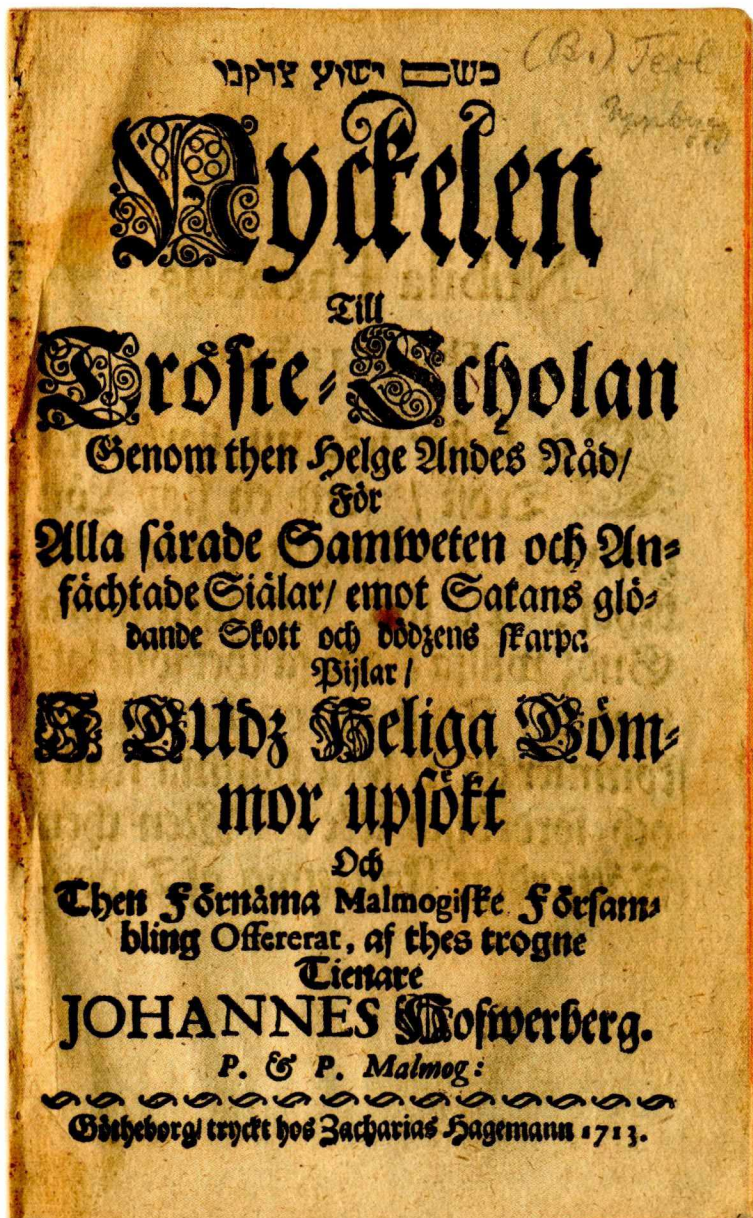 בשם ישוע צדקנו
(B.) Teol
Nyckelen
Till
Tröste-Scholan
Genom then Helge Andes Nåd/
För
Alla sårade Samweten och An-
fächtade Siälar/ emot Satans glö-
dande Skott och dödzens skarpa
Pijlar/
I GUdz Heliga Göm-
mor upsökt
Och
Then Förnäma Malmogiske Försam-
bling Offererat, af thes trogne
Tienare
JOHANNES Hofwerberg.
P. & P. Malmog:
Götheborg/ tryckt hos Zacharias Hagemann 1713.